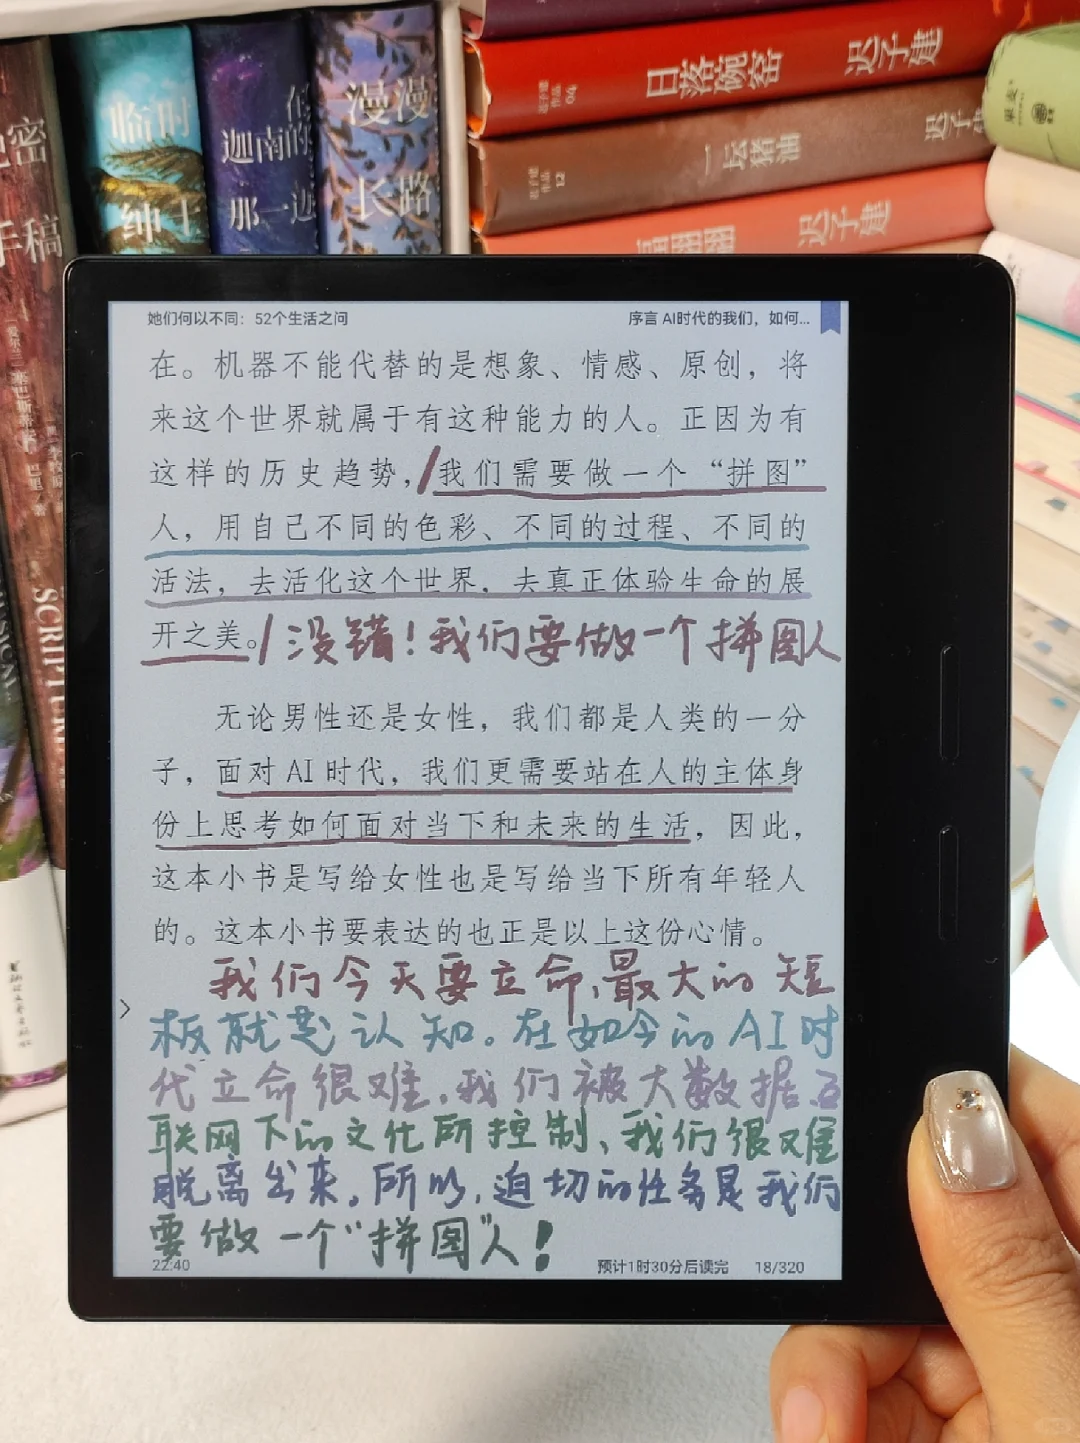 密
手稿
临时
绅士
迦南的
那一边
漫漫
长路
SCRIPTUM
日落碗窑
迟子建
迟子建
作品
04
一坛猪油
迟子建
作品
12
迟子建
她们何以不同：52个生活之问
序言 AI时代的我们，如何...
在。机器不能代替的是想象、情感、原创，将
来这个世界就属于有这种能力的人。正因为有
这样的历史趋势，/我们需要做一个“拼图”
人，用自己不同的色彩、不同的过程、不同的
活法，去活化这个世界，去真正体验生命的展
开之美。/没错！我们要做一个拼图人
无论男性还是女性，我们都是人类的一分
子，面对 AI 时代，我们更需要站在人的主体身
份上思考如何面对当下和未来的生活，因此，
这本小书是写给女性也是写给当下所有年轻人
的。这本小书要表达的也正是以上这份心情。
我们今天要立命，最大的短
板就是认知。在如今的AI时
代立命很难，我们被大数据互
联网下的文化所控制、我们很难
脱离出来。所以，迫切的任务是我们
要做一个“拼图”人！
22:40
预计1时30分后读完
18/320